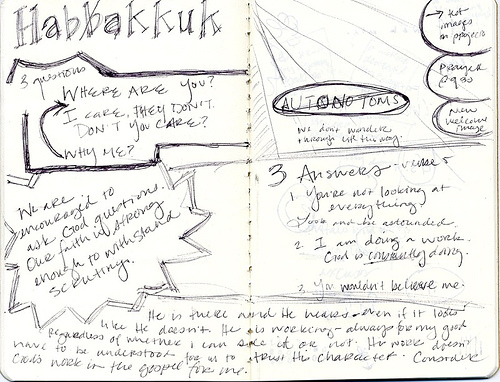 Habbakkuk
3 questions
WHERE ARE YOU?
I CARE, THEY DON'T.
DON'T YOU CARE?
WHY ME?
We are
encouraged to
ask God questions.
Our faith is strong
enough to withstand
scrutiny.
→ Hot
images
in projects
Prayer
@ 9:30
New
welcome
image
AUTONOTOMS
We don't wander
through life this way.
3 Answers - verse 5
1. You're not looking at
everything
Look and be astounded.
2. I am doing a work.
God is constantly doing.
3. You wouldn't believe me.
He is there and He hears - even if it looks
like He doesn't. He is working - always for my good
Regardless of whether I can see it or not. His work doesn't
have to be understood for us to trust His character. Consider
God's work in the gospel for me.